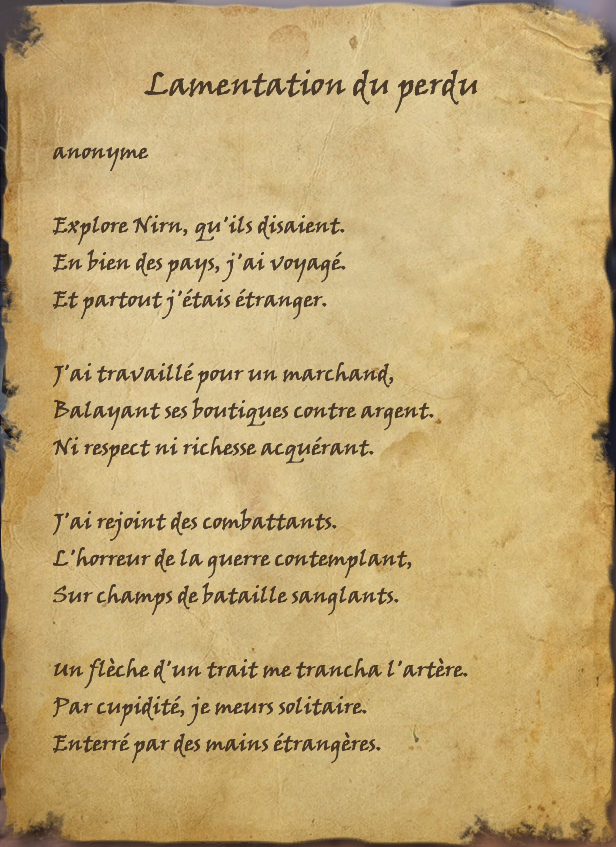 Lamentation du perdu
anonyme
Explore Nirn, qu'ils disaient.
En bien des pays, j'ai voyagé.
Et partout j'étais étranger.
J'ai travaillé pour un marchand,
Balayant ses boutiques contre argent.
Ni respect ni richesse acquérant.
J'ai rejoint des combattants.
L'horreur de la guerre contemplant,
Sur champs de bataille sanglants.
Un flèche d'un trait me trancha l'artère.
Par cupidité, je meurs solitaire.
Enterré par des mains étrangères.